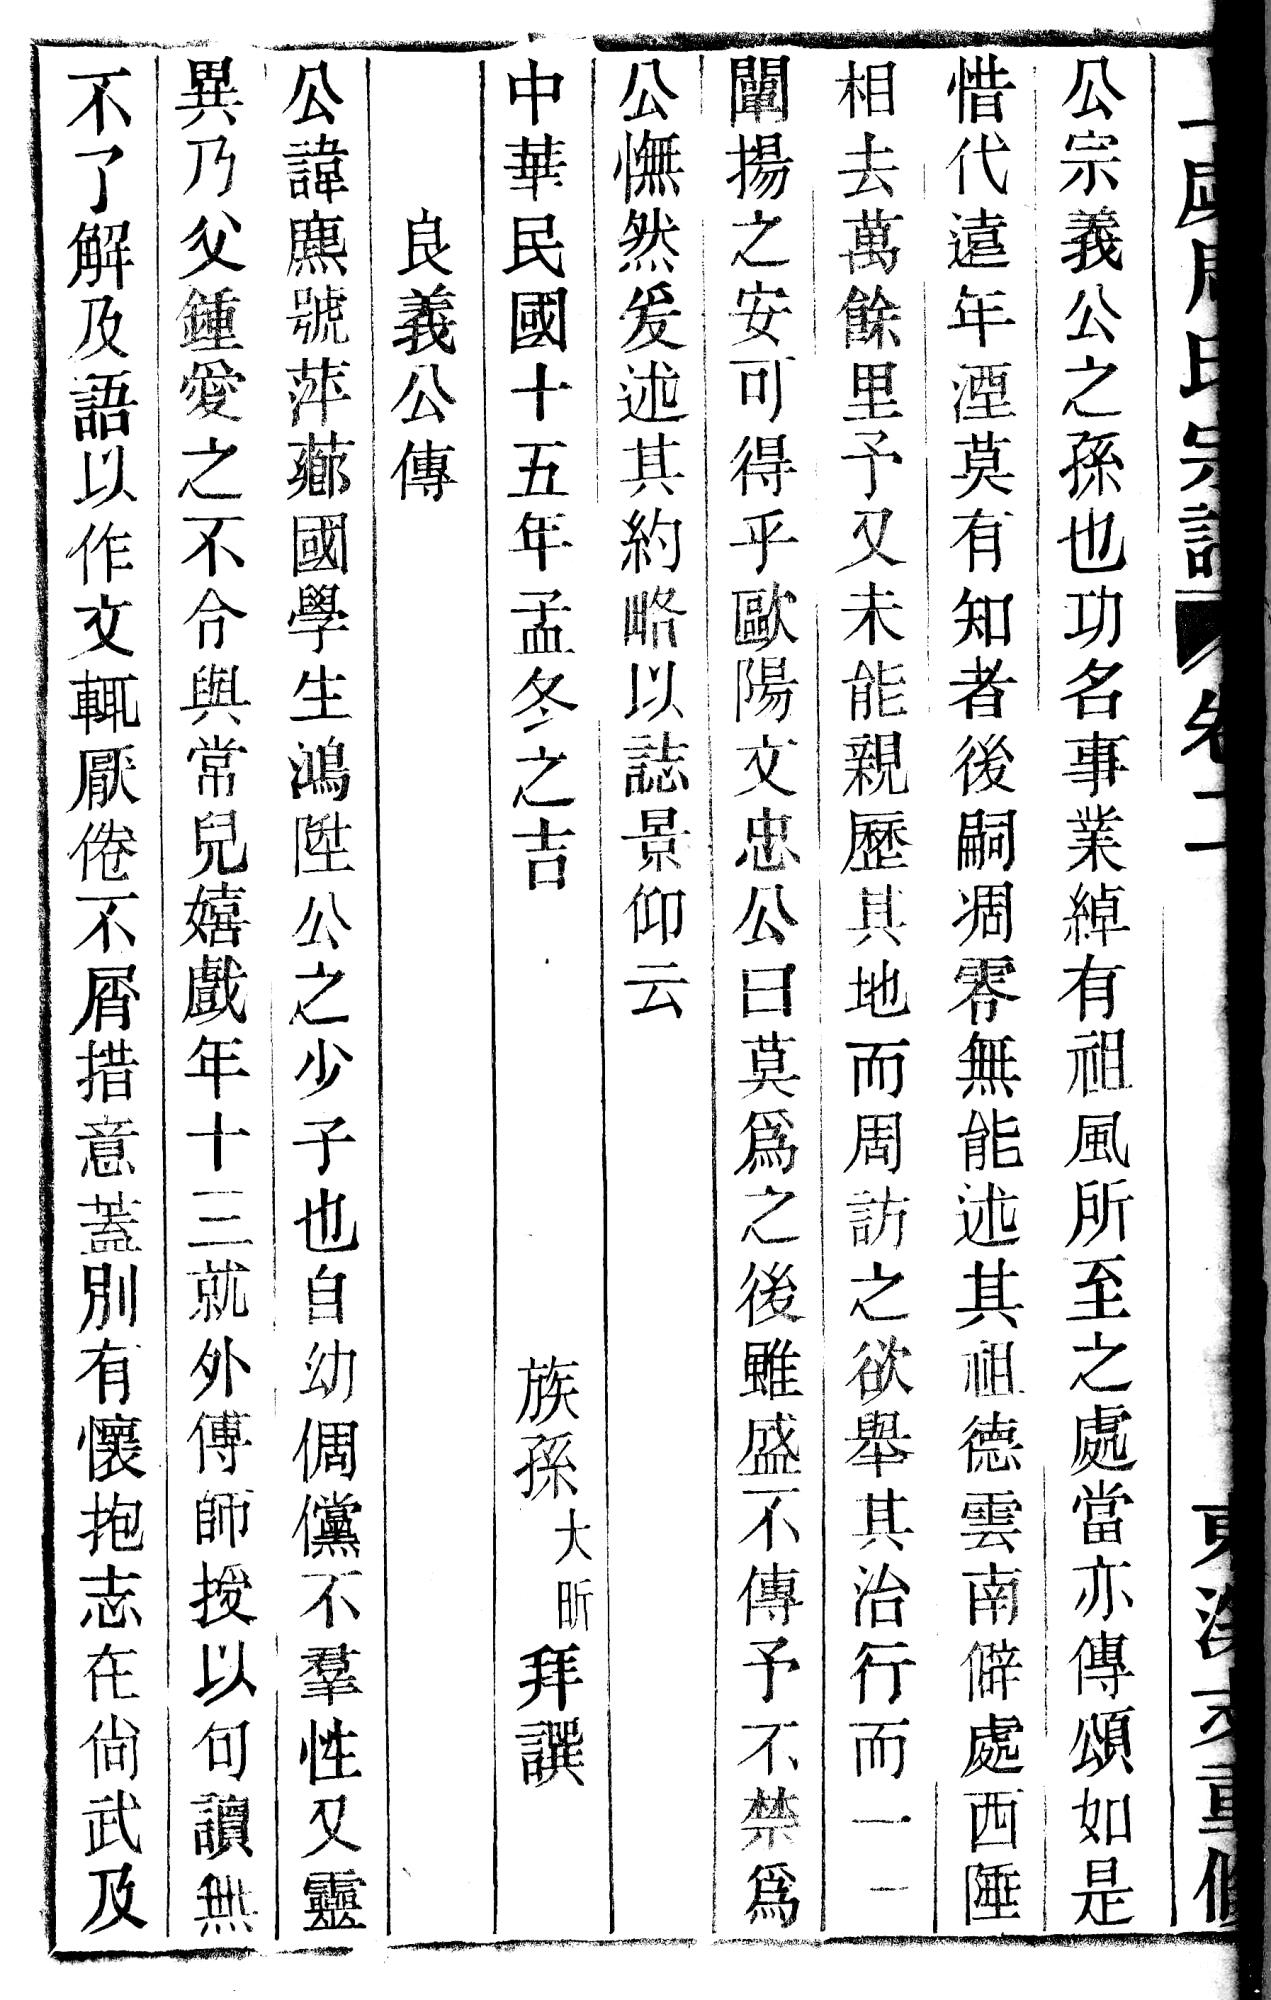 周氏宗譜 卷二 重修
公宗義公之孫也功名事業綽有祖風所至之處當亦傳頌如是
惜代遠年湮莫有知者後嗣凋零無能述其祖德雲南僻處西陲
相去萬餘里予又未能親歷其地而周訪之欲舉其治行而一一
闡揚之安可得乎歐陽文忠公曰莫爲之後雖盛不傳予不禁爲
公憮然爰述其約略以誌景仰云
中華民國十五年孟冬之吉 族孫大昕拜譔
良義公傳
公諱廌號萍薌國學生鴻陞公之少子也自幼倜儻不羣性又靈
異乃父鍾愛之不合與常兒嬉戲年十三就外傅師授以句讀無
不了解及語以作文輒厭倦不屑措意蓋別有懷抱志在尙武及